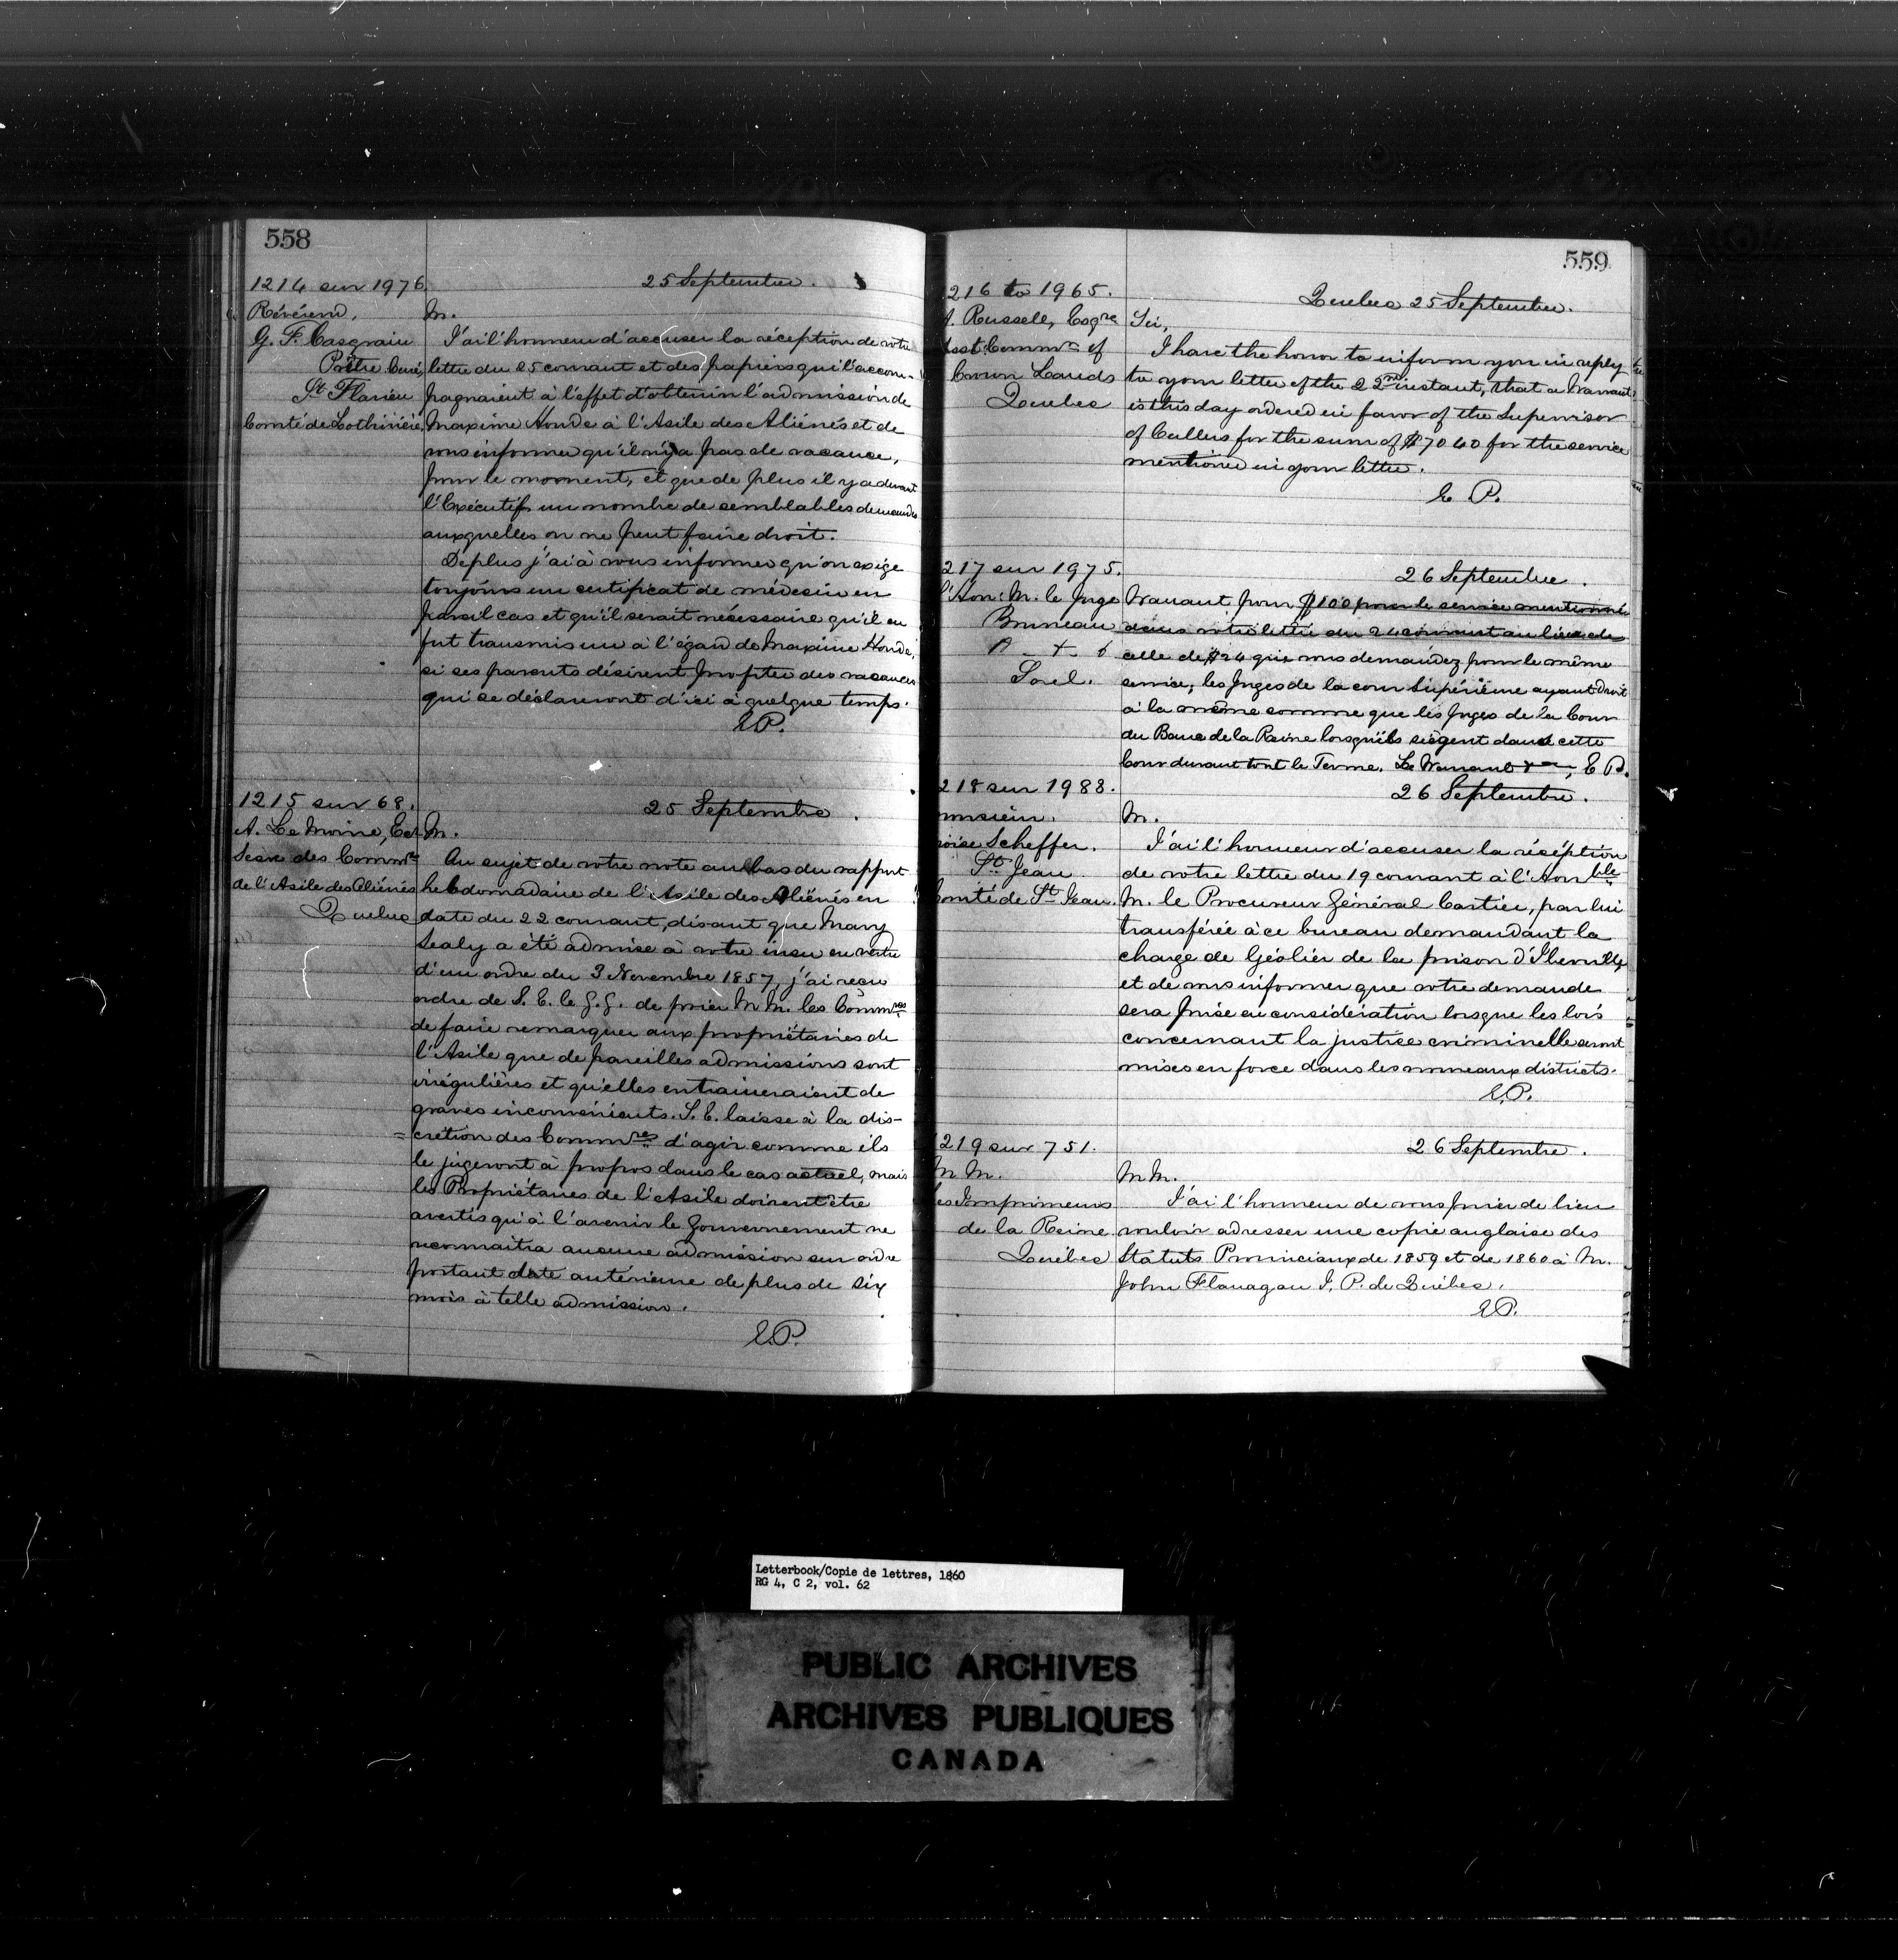 558
1214 sur 1976.
25 Septembre.
Révérend,
G. F. Casgrain
Prêtre Curé,
St Flavien
Comté de Lothinière,
M.
J'ai l'honneur d'accuser la réception de votre
lettre du 25 courant et des papiers qui l'accom-
pagnaient à l'effet d'obtenir l'admission de
Maxime Houde à l'Asile des Aliénés et de
vous informer qu'il n'y a pas de vacance,
pour le moment, et que de plus il y a devant
l'Exécutif un nombre de semblables demandes
auxquelles on ne peut faire droit.
De plus j'ai à vous informer qu'on exige
toujours un certificat de médecin en
pareil cas et qu'il serait nécessaire qu'il en
fut transmis un à l'égard de Maxime Houde,
si ses parents désirent profiter des vacances
qui se déclareront d'ici à quelque temps.
E.P.
1215 sur 68.
25 Septembre.
A. Le Moine, Ecr
Secre des Commres
de l'Asile des Aliénés
Quebec
M.
Au sujet de votre note au bas du rapport
hebdomadaire de l'Asile des Aliénés en
date du 22 courant, disant que Mary
Sealy a été admise à votre insu en vertu
d'un ordre du 3 Novembre 1857, j'ai reçu
ordre de S. E. le G. G. de prier M M. les Commres
de faire remarquer aux propriétaires de
l'Asile que de pareilles admissions sont
irrégulières et qu'elles entraineraient de
graves inconvenients. S. E. laisse à la dis-
=crétion des Commres d'agir comme ils
le jugeront à propos dans le cas actuel, mais
les Propriétaires de l'Asile doivent être
avertis qu'à l'avenir le Gouvernement ne
reconnaitra aucune admission sur ordre
portant date antérieure de plus de six
mois à telle admission.
E.P.
559
216 to 1965.
Quebec 25 Septembre.
A. Russell, Esqre
Asst Commr of
Crown Lands
Quebec
Sir,
I have the honor to inform you in reply
to your letter of the 22nd instant, that a Warrant
is this day ordered in favor of the Supervisor
of Cullers for the sum of $7040 for the service
mentioned in your letter.
E P.
217 sur 1975.
26 Septembre.
l'Hon: M. le Juge
Bruneau
Sorel.
Warrant pour $100 pour le service mentionné
dans votre lettre du 24 courant au lieu de
celle de $24 que vous demandez pour le même
service, les Juges de la cour Supérieure ayant droit
à la même somme que les Juges de la Cour
du Banc de la Reine lorsqu'ils siègent dans cette
Cour durant tout le Terme. Le Warrant &a, E P.
218 sur 1988.
26 Septembre.
onsieur.
Moïse Scheffer.
St Jean
Comté de St Jean.
M.
J'ai l'honneur d'accuser la réception
de votre lettre du 19 courant à l'Honble
M. le Procureur Général Cartier, par lui
transférée à ce bureau demandant la
charge de Géolier de la prison d'Iberville
et de vous informer que votre demande
sera prise en considération lorsque les lois
concernant la justice criminelle seront
mises en force dans les nouveaux districts.
E.P.
219 sur 751.
26 Septembre.
M M.
les Imprimeurs
de la Reine
Québec
M M.
J'ai l'honneur de vous prier de bien
vouloir adresser une copie anglaise des
Statuts Provinciaux de 1859 et de 1860 à M.
John Flanagan J. P. de Québec.
E.P.
Letterbook/Copie de lettres, 1860
RG 4, C 2, vol. 62
PUBLIC ARCHIVES
ARCHIVES PUBLIQUES
CANADA